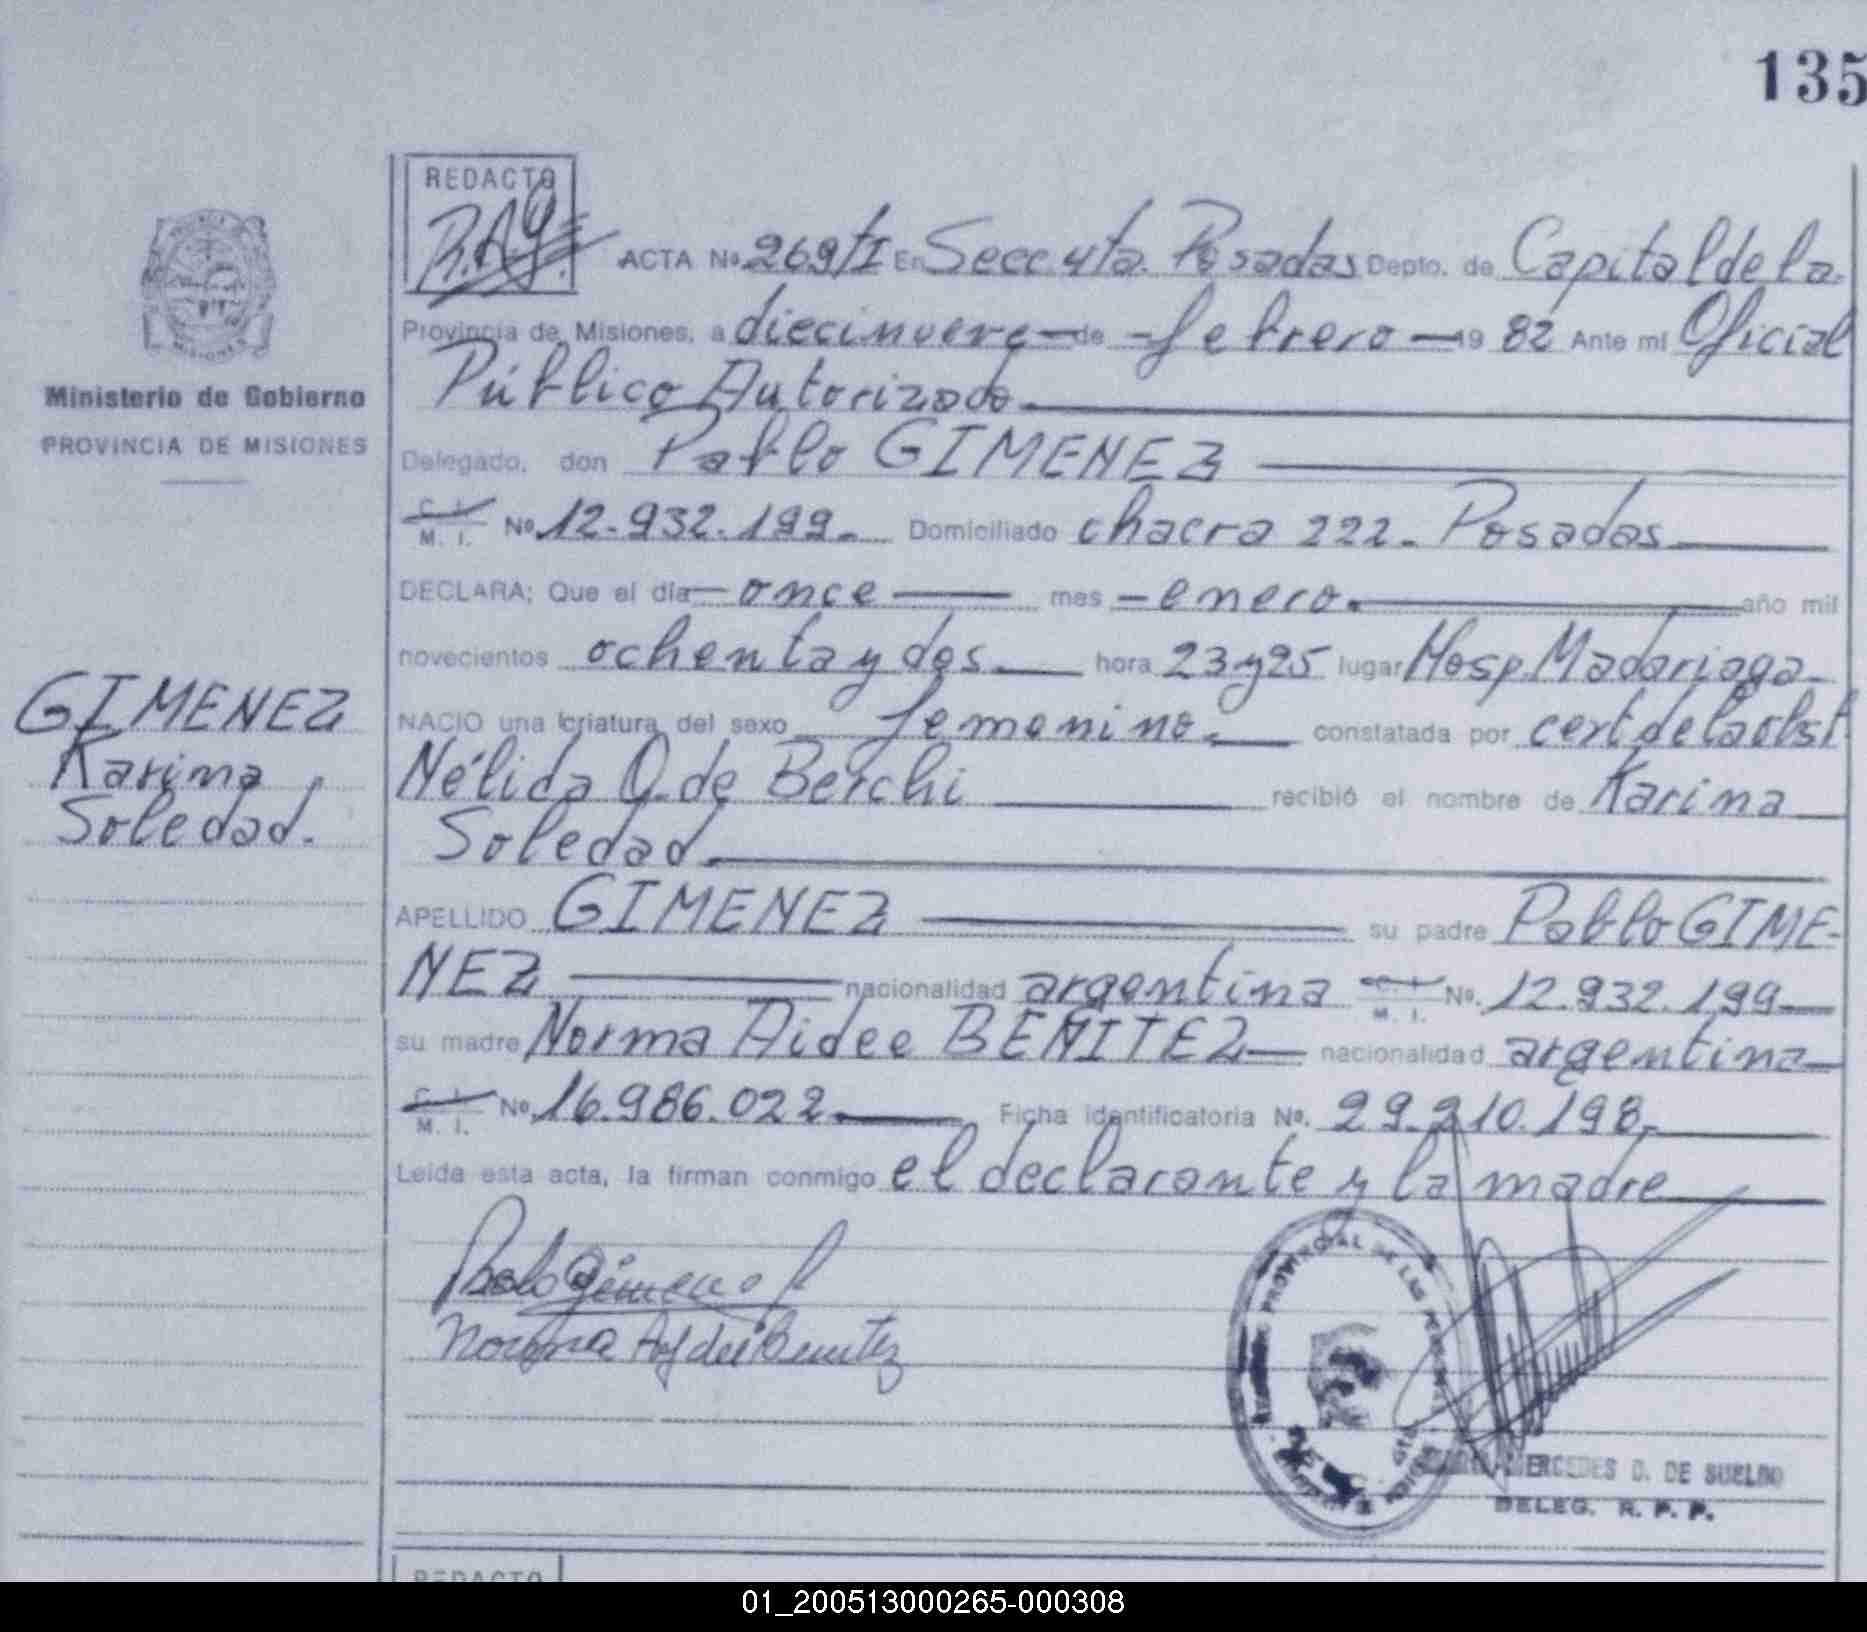 135
REDACTO
R.A.G.
ACTA Nº 269/I En Secc. 4ta. Posadas Depto. de Capital de la
Provincia de Misiones, a diecinueve de febrero 19 82 Ante mí Oficial
Público Autorizado
Ministerio de Gobierno
PROVINCIA DE MISIONES
Delegado, don Pablo GIMENEZ
C. I.
M. I. Nº 12.932.199. Domiciliado chacra 222. Posadas
DECLARA; Que el día once mes enero. año mil
novecientos ochenta y dos hora 23 y 25 lugar Hosp. Madariaga
GIMENEZ
Karina
Soledad.
NACIO una criatura del sexo femenino. constatada por cert de la obst
Nélida O. de Berchi recibió el nombre de Karina
Soledad
APELLIDO GIMENEZ su padre Pablo GIME-
NEZ nacionalidad argentina C. I. M. I. Nº. 12.932.199
su madre Norma Aidee BENITEZ nacionalidad argentina
C. I.
M. I. Nº. 16.986.022 Ficha identificatoria Nº. 29.210.198.
Leída esta acta, la firman conmigo el declarante y la madre
Pablo Gimenez
Norma Aydee Benitez
PROVINCIAL DE LAS
MERCEDES D. DE SUELDO
DELEG. R. P. P.
REDACTO
01_200513000265-000308